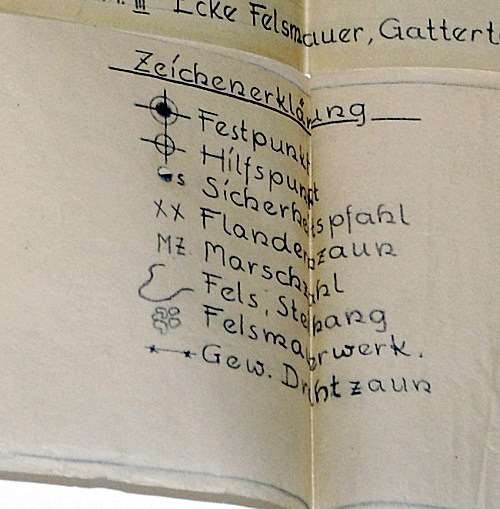 III Ecke Felsmauer, Gattert
Zeichenerklärung
Festpunkt
Hilfspunkt
S Sicherheitspfahl
XX Flandernzaun
MZ Marschzahl
Fels, Steilhang
Felsmauerwerk.
Gew. Drahtzaun